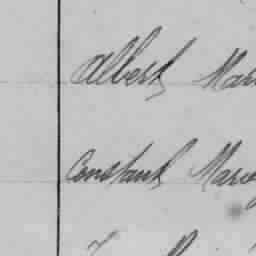 Albert Mar
Constant Marc